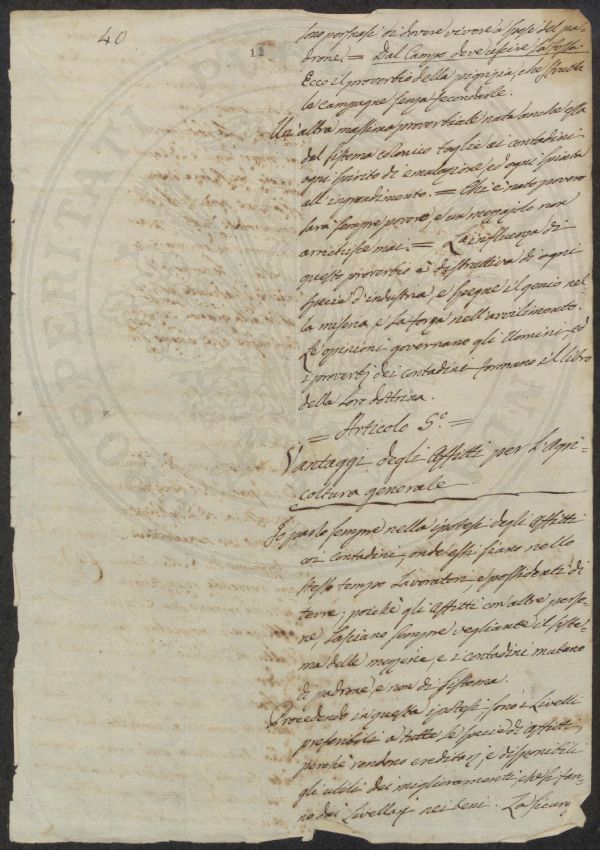 40
12
sono persuasi di dovere vivere a spese del pa-
drone. = Dal Campo deve uscire la fossa.
Ecco il proverbio della pigrizia, che sfrutta
le campagne senza fecondarle.
Un'altra massima proverbiale nata anche essa
dal sistema colonico toglie ai contadini
ogni spirito di emulazione, ed ogni spinta
all'ingrandimento. = Chi è nato povero
sarà sempre povero, e un mezzajolo non
arrichisce mai. = La influenza di
questo proverbio è distruttiva di ogni
specie d'industria, e spegne il genio nel-
la miseria, e la forza nell'avvilimento.
Le opinioni governano gli Uomini, ed
i proverbj dei contadini formano il libro
della loro dottrina.
= Articolo 5.º =
Vantaggi degli Affitti per l'Agri-
coltura generale.
Io parlo sempre nella ipotesi degli Affitti
coi contadini, onde essi siano nello
stesso tempo Lavoratori, e possidenti di
terre; poichè gli Affitti con altre perso-
ne, lasciano sempre vegliante il siste-
ma delle mezzerie, e i contadini mutano
di padrone, e non di sistema.
Procedendo in questa ipotesi, sono i Livelli
preferibili a tutte le specie di Affitti,
perchè rendono ereditarj, e disponibili
gli utili dei miglioramenti, che si fan-
no dai Livellarj nei beni. La sicurez